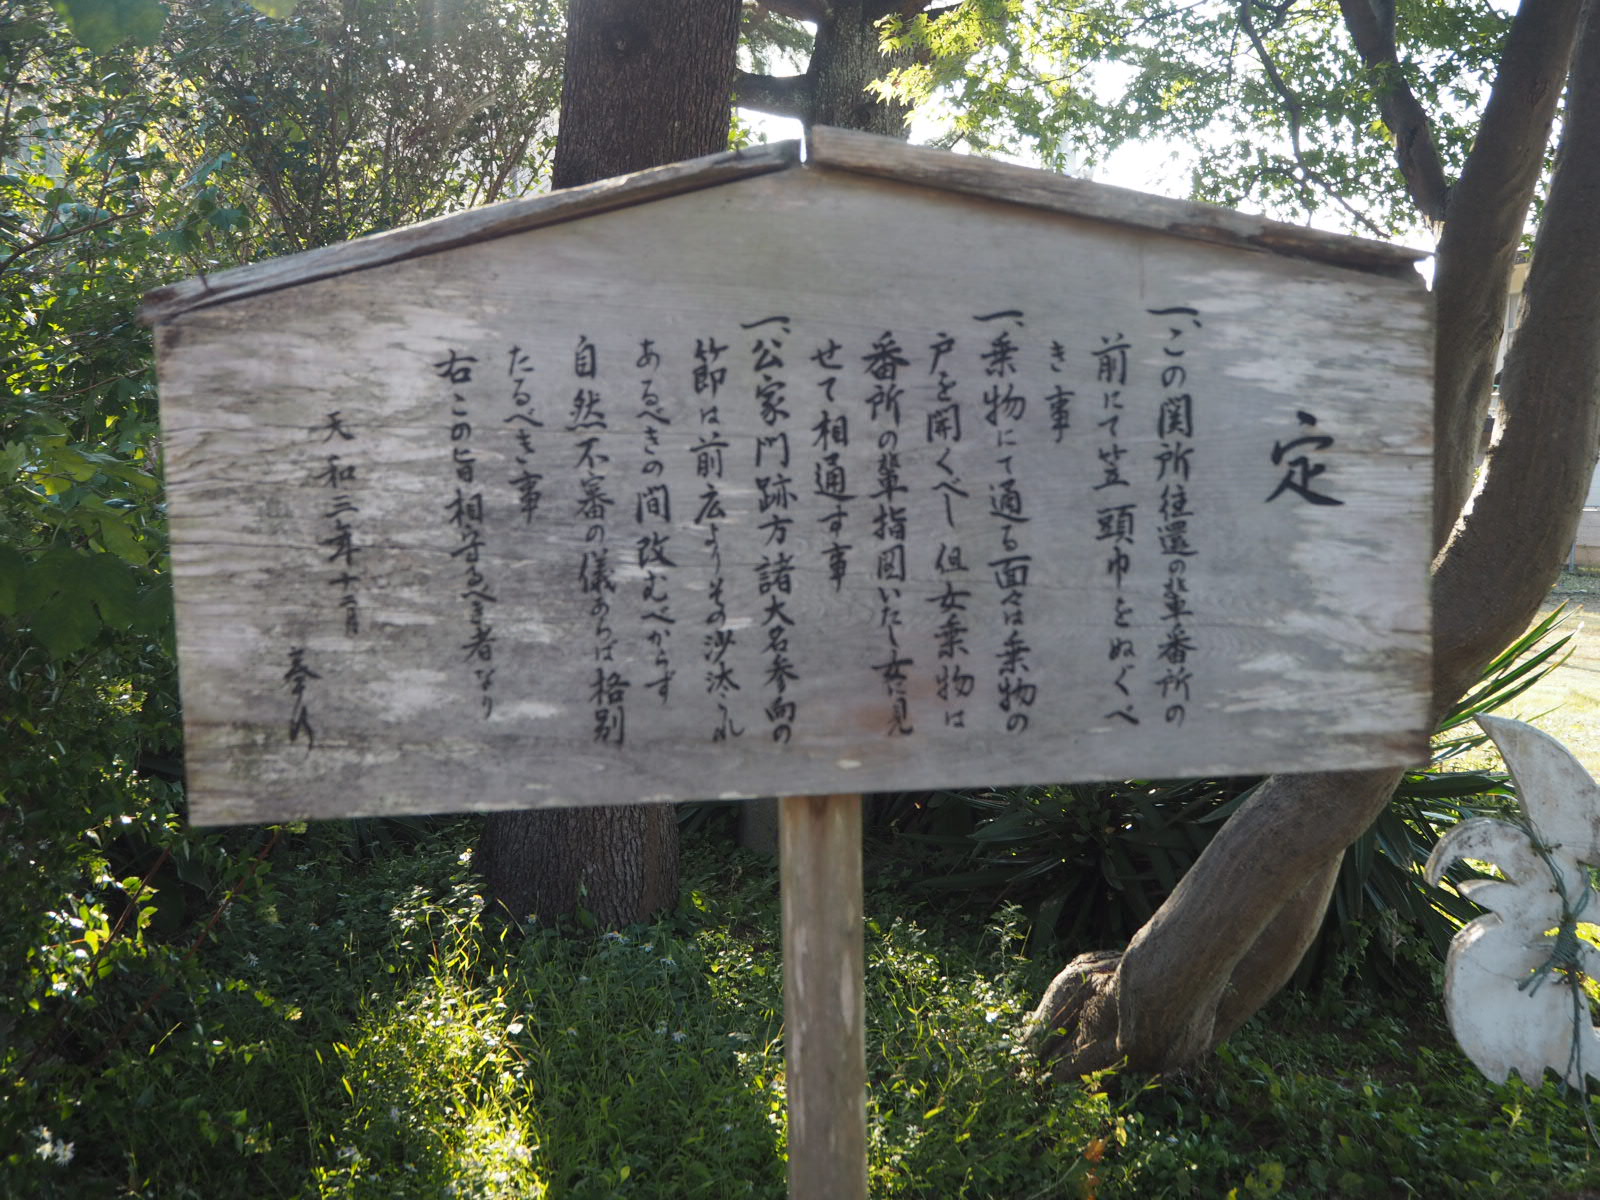 定
一、この関所往還の輩番所の
前にて笠頭巾をぬぐべ
き事
一、乗物にて通る面々は乗物の
戸を開くべし但女乗物は
番所の輩指図いたし女に見
せて相通す事
一、公家門跡方諸大名参向の
節は前広よりその沙汰これ
あるべきの間改むべからず
自然不審の儀あらば格別
たるべき事
右この旨相守るべき者なり
天和三年十二月
奉行